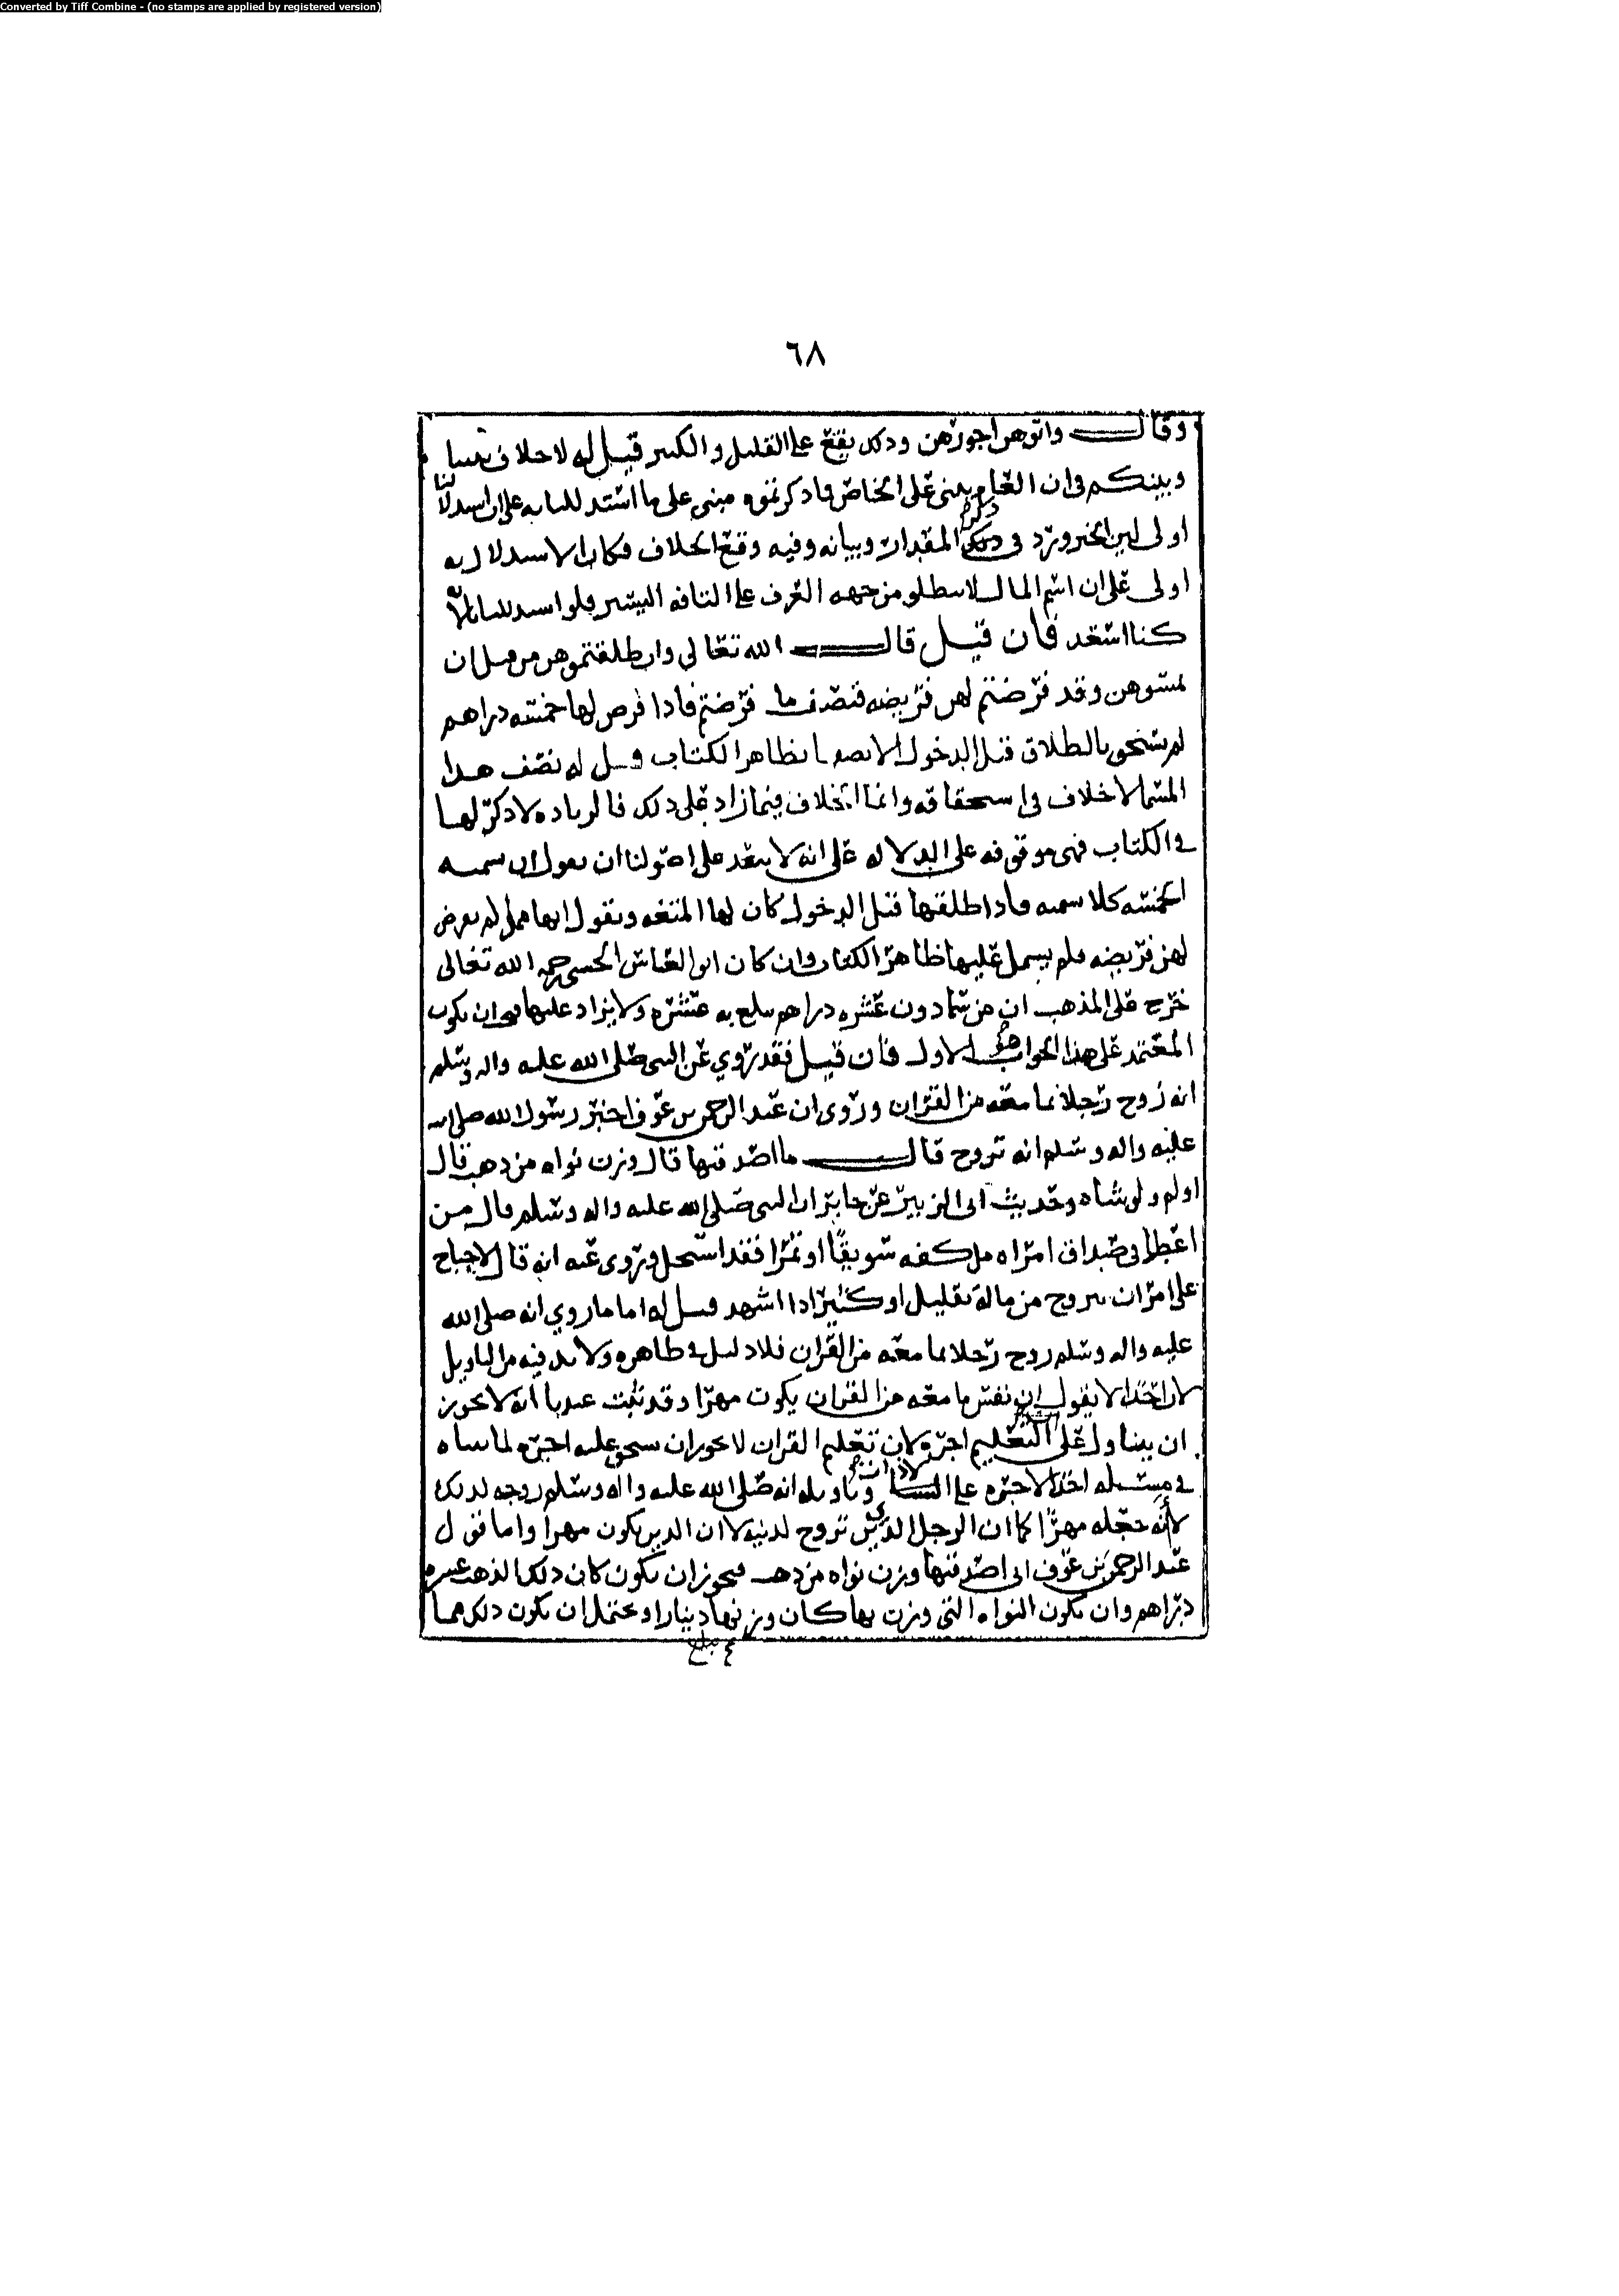 Converted by Tiff Combine - (no stamps are applied by registered version)
٦٨
وقال واتوهن اجورهن وذلك يقع على القليل والكثير قيل له لا خلاف بيننا
وبينكم في ان العام يبنى على الخاص فما ذكرتموه مبني على ما استدللنا به على ان استدلالنا
اولى لان الخبر ورد في ذكر المقدار وبيانه وفيه وقع الخلاف فكان الاستدلال به
اولى على ان اسم المال لا ينطلق من جهه العرف على التافه اليسير فلو استدللنا بالآيه
كنا اسعد فان قيل قال الله تعالى وان طلقتموهن من قبل ان
تمسوهن وقد فرضتم لهن فريضه فنصف ما فرضتم فاذا فرض لها خمسه دراهم
لم تستحق بالطلاق قبل الدخول الا نصفها بظاهر الكتاب قيل له نصف هذا
المسمى لا خلاف في استحقاقه وانما الخلاف فيما زاد على ذلك فالزياده لا ذكر لها
في الكتاب فهي موقوفه على الدلاله على انه لا يبعد على اصولنا ان نقول ان تسميه
الخمسه كلا تسميه فاذا طلقها قبل الدخول كان لها المتعه ونقول انها ممن لم يفرض
لهن فريضه فلم يشمل عليها ظاهر الكتاب وان كان ابو العباس الحسني رحمه الله تعالى
خرج على المذهب ان من سما دون عشره دراهم بلغ به عشره ولا يزاد عليها فيجب ان يكون
المعتمد على هذا الجواب هو الاول فان قيل فقد روي عن النبي صلى الله عليه واله وسلم
انه زوج رجلا بما معه من القران وروى ان عبد الرحمن بن عوف اخبر رسول الله صلى الله
عليه واله وسلم انه تزوج قال ما اصدقتها قال وزن نواه من ذهب قال
اولم ولو بشاه وحديث ابي الزبير عن جابر ان النبي صلى الله عليه واله وسلم قال من
اعطى في صداق امراه مل كفه سويقا او تمرا فقد استحل وروى عنه انه قال لا جناح
على امر ان يتزوج من ماله بقليل او كثير اذا اشهد قيل له اما ما روي انه صلى الله
عليه واله وسلم زوج رجلا بما معه من القران فلا دليل في ظاهره ولا بد فيه من التاويل
لان احدا لا يقول ان نفس ما معه من القران يكون مهرا وقد ثبت عندنا انه لا يجوز
ان يتناول على التعليم اجره ولان تعليم القران لا يجوز ان يستحق عليه اجره لما بيناه
في مسئله اخذ الاجره على الاذان وتاويله انه صلى الله عليه واله وسلم زوجه لذلك
لا انه جعله مهرا كما ان الرجل الدين تزوج لدينه لا ان الدين يكون مهرا واما قول
عبد الرحمن بن عوف اني اصدقتها وزن نواه من ذهب فيجوز ان يكون كان ذلك الذهب عشره
دراهم وان يكون النواه التي وزن بها كان وزنها دينارا ويحتمل ان يكون ذلك مما
بلغ